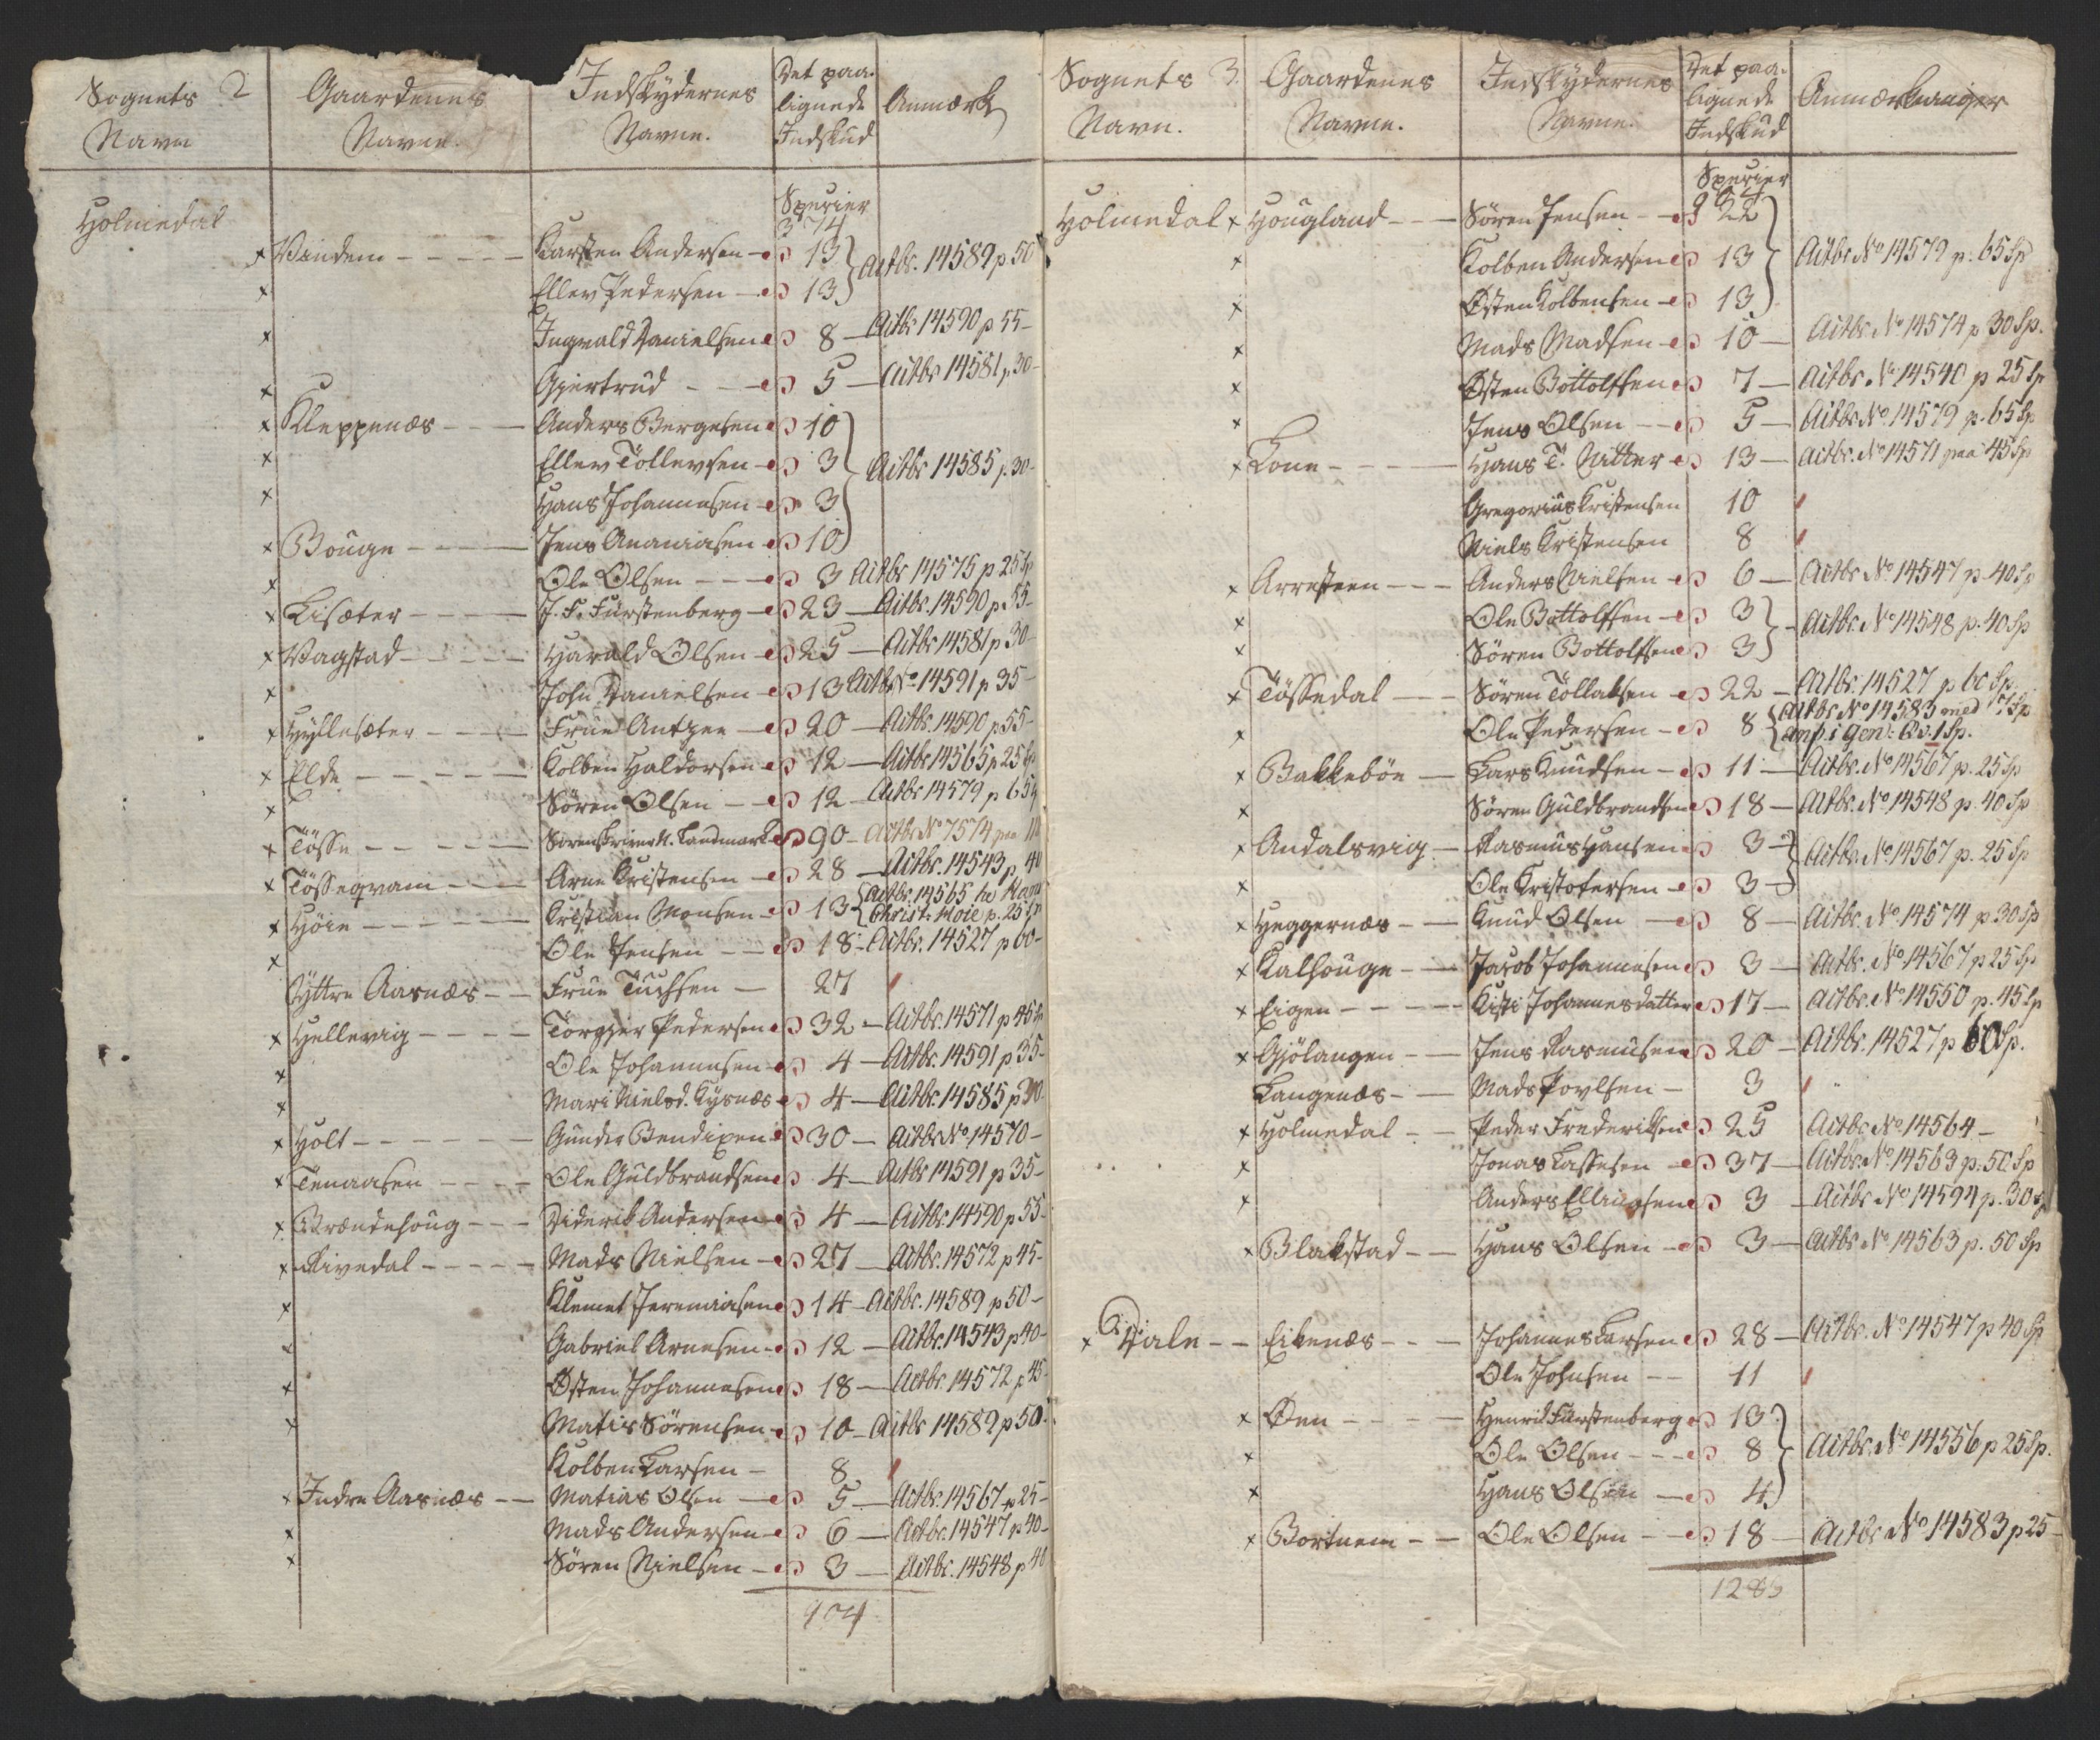 Sognets 2 Gaardenes Indskydernes Det paa- Anmærk
Navn Navne. Navne. lignede
Indskud
Holmedal Spesier
374
x Vindem - - - - - Karsten Andersen - 13 } Actbr. 14589 p 50
x Ellev Pedersen - 13
x Ingvald Danielsen 8 - Actbr 14590 p 55-
x Giertrud - - 5 - Actbr 14581 p. 30-
x Kleppenæs - - - Anders Bergesen 10 }
x Ellev Tollevsen - 3 Actbr 14585 p. 30-
x Hans Johannesen - 3
x Bouge - - - - Jens Ananiasen 10
x Ole Olsen - - - 3 Actbr 14575 p 25 Sp
x Lisæter - - - - J. F. Fürstenberg - 23 - Actbr. 14590 p. 55-
x Vagstad - - - - Harald Olsen - 25 - Actbr 14581 p 30-
x John Danielsen - 13 Actbr No 14591 p 35-
x Hyllesæter - - - - Frue Antzee - 20 - Actbr. 14590 p. 55-
x Elde - - - - - Kolben Haldorsen 12 - Actbr 14565 p. 25 Sp
x Søren Olsen - - 12 - Actbr 14579 p 65
x Tösse - - - - Sorenskriver N. Landmark 90 - Actbr No 7574 paa
x Tösseqvam - - - Arne Kristensen - 28 - Actbr. 14543 p 40
x Höie - - - - - Kristian Monsen - 13 { Actbr. 14565
Christ. Moie p. 25 Sp
x Ole Jensen - - 18 - Actbr. 14527 p 60-
Yttre Aarnæs - - Frue Tuchsen - 27
x Hellevig - - - - Torgier Pedersen 32 - Actbr. 14571 p 45 Sp
x Ole Johannesen 4 - Actbr. 14591 p 35-
x Mari Nielsd. Kysnæs 4 - Actbr. 14585 p 30
x Holt - - - - - - Gunder Bendixen 30 - Actbr No 14570 -
x Tenaasen - - - - Ole Guldbrandsen 4 - Actbr 14591 p 35-
x Brændehoug - - - Diderik Andersen 4 - Actbr. 14590 p 55-
x Rivedal - - - - - Mads Nielsen - 27 - Actbr. 14572 p 45-
x Klemet Jeremiasen 14 - Actbr. 14589 p 50 -
x Gabriel Arnesen - 12 - Actbr. 14543 p 40-
x Østen Johannesen 18 - Actbr. 14572 p 45
x Matis Sörensen - 10 - Actbr 14589 p 50.
Kolben Larsen - 8
x Indre Aarnæs - - Matias Olsen - 5 - Actbr. 14567 p 25-
x Mads Andersen - 6 - Actbr. 14547 p 40-
x Sören Nielsen - 3 - Actbr. 14548 p 40
974
Sognets 3. Gaardenes Indskydernes Det paa- Anmærkninger
Navn. Navne. Navne. lignede
Indskud
Spesier
974
Holmedal x Hougland - - - Sören Jensen - 22 }
x Kolben Andersen 13 Actbr No 14579 p. 65 Sp
x Østen Kolbensen - 13
x Mads Madsen - 10 - Actbr. No 14574 p 30 Sp.
x Østen Bottolfsen 7 - Actbr. No 14540 p 25 Sp
x Jens Olsen - - 5 - Actbr. No 14579 p. 65 Sp
x Lone - - - - Hans T. Nitter 13 - Actbr. No 14571 paa 45 Sp
Gregorius Kristensen 10
Niels Kristensen 8
x Arresteen - - - Anders Nielsen - 6 - Actbr No. 14547 p. 40 Sp
x Ole Bottolfsen - 3 } - Actbr. No 14548 p. 40 Sp
x Sören Bottolfsen 3
x Tössedal - - - Sören Tollaksen - 22 - Actbr. 14527 p 60 Sp.
x Ole Pedersen - 8 { Actbr No 14583 med Sp
anf. i gen: Qv. 1 Sp.
x Bakkeböe - Lars Knudsen - 11 - Actbr. No 14567 p. 25 Sp
x Sören Guldbrandsen 18 - Actbr. No 14548 p. 40 Sp
x Andalsvig - Rasmus Hansen 3 } Actbr. No 14567 p. 25 Sp
x Ole Kristofersen - 3
x Heggernæs - - Knud Olsen - 8 - Actbr. No 14574 p. 30 Sp
x Kalhouge - - Jacob Johannesen 3 - Actbr. No 14567 p 25 Sp
x Eigen - - - - Kisti Johannesdatter 17 - Actbr. No 14550 p. 45 Sp
x Gjölangen - - Jens Rasmusen 20 - Actbr. 14527 p 60 Sp.
Langenæs - - Mads Povlsen - 3
x Holmedal - - Peder Frederiksen 25 Actbr No 14564 -
x Jonas Lassesen - 37 - Actbr. No 14563 p. 50 Sp
x Anders Ellingsen 3 - Actbr No 14594 p. 30
x Blakstad - - Hans Olsen - 3 - Actbr No 14563 p. 50 Sp
x Dale - - Eikenæs - - - Johannes Larsen 28 - Actbr. No 14547 p 40 Sp
Ole Johnsen - - 11
x Øen - - - - Henrik Fürstenberg 13 }
x Ole Olsen - - - 8 Actbr. No 14556 p 25 Sp.
x Hans Olsen - 4
x Bortnem - - Ole Olsen - - 18 - Actbr No 14583 p 25-
1283